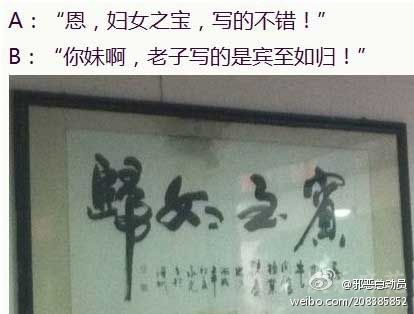 A：“恩，妇女之宝，写的不错！”
B：“你妹啊，老子写的是宾至如归！”
賓至如歸
@邪恶自动员
weibo.com/208385852